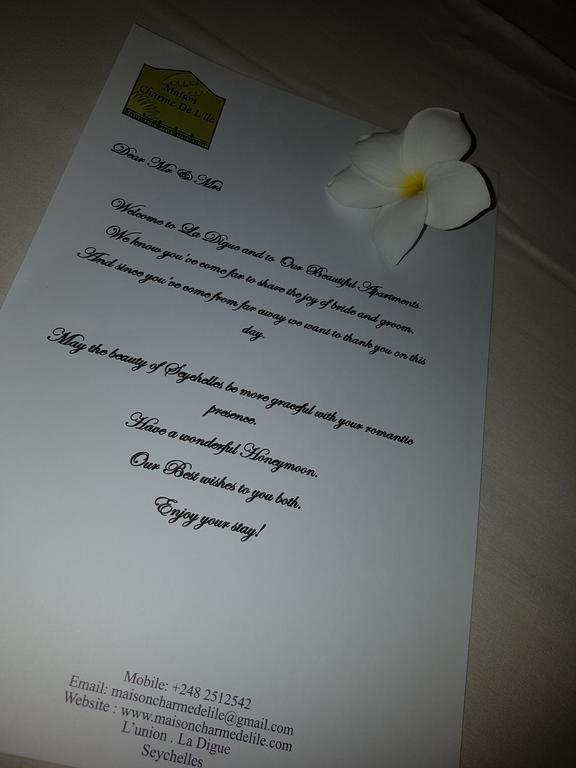 Maison
Charme De L'ile
Dear Mr & Mrs
Welcome to La Digue and to Our Beautiful Apartments.
We know you've come far to share the joy of bride and groom.
And since you've come from far away we want to thank you on this
day.
May the beauty of Seychelles be more graceful with your romantic
presence.
Have a wonderful Honeymoon.
Our Best wishes to you both.
Enjoy your stay!
Mobile: +248 2512542
Email: maisoncharmedelile@gmail.com
Website : www.maisoncharmedelile.com
L'union . La Digue
Seychelles